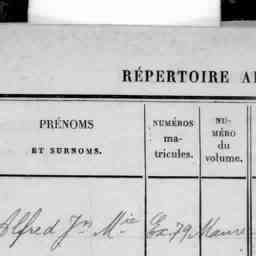 RÉPERTOIRE A
PRÉNOMS
ET SURNOMS.
NUMÉROS
ma-
tricules.
NU-
MÉRO
du
volume.
Alfred Jn Mie Ex.79